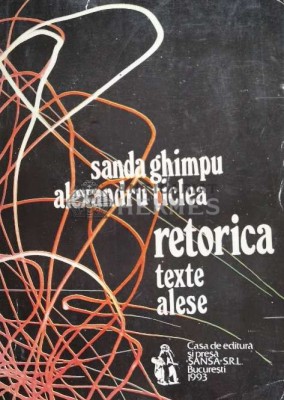 sanda ghimpu
alexandru ţiclea
HERMES
retorica
texte
alese
Casa de editură
şi presă
"ŞANSA"-S.R.L.
Bucureşti
1993